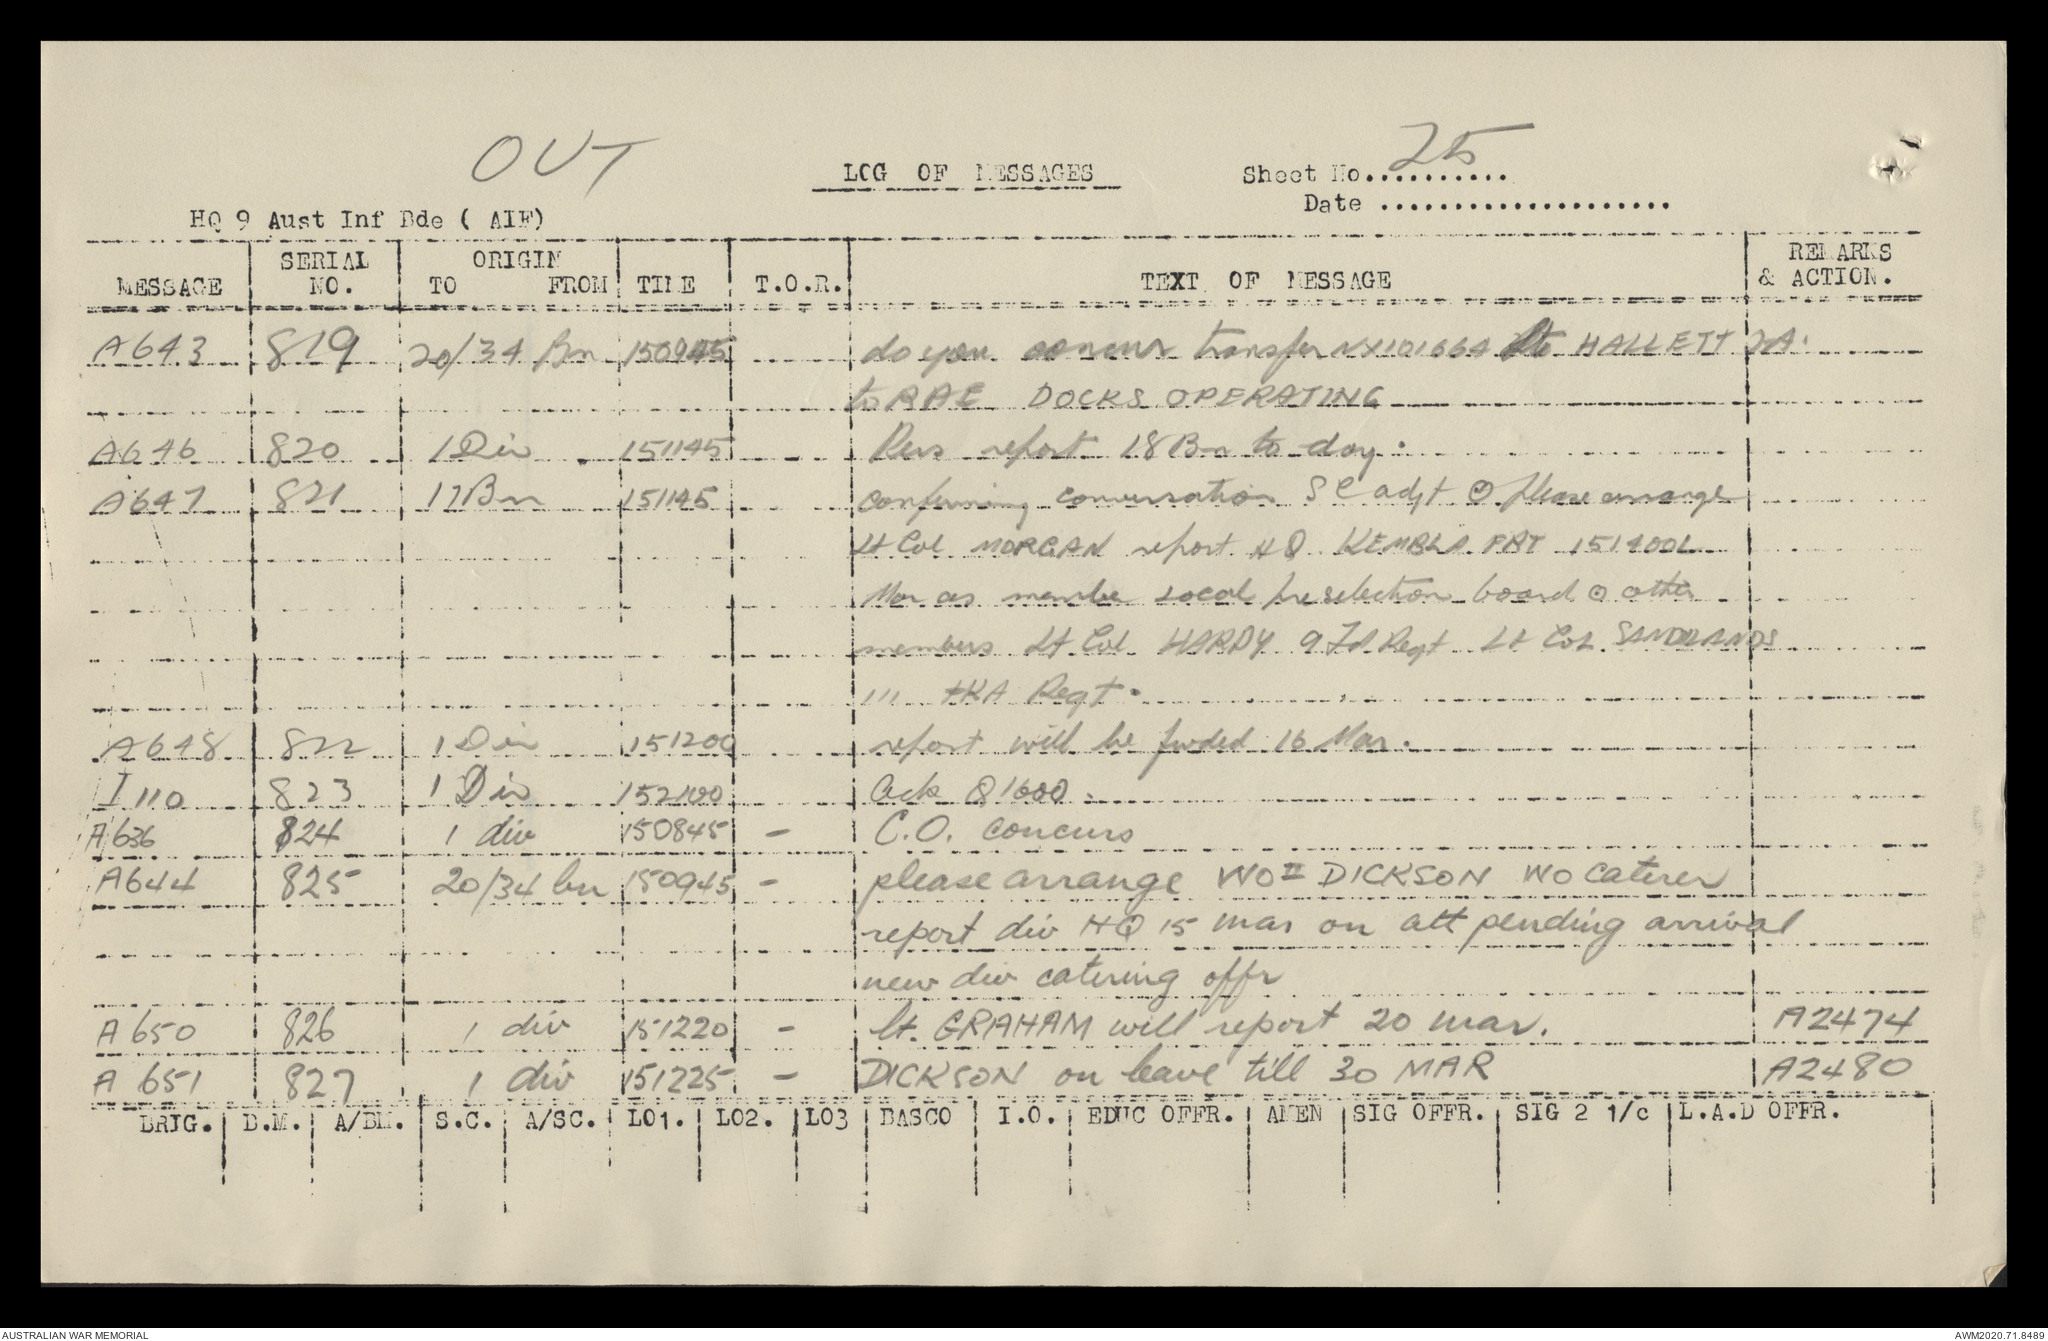 OUT
LOG OF MESSAGES
Sheet No.......... 25
Date ....................
HQ 9 Aust Inf Bde ( AIF)
MESSAGE | SERIAL NO. | ORIGIN TO FROM | TIME | T.O.R. | TEXT OF MESSAGE | REMARKS & ACTION.
A643 819 20/34 Bn 150945 do you concur transfer NX101664 Pte HALLETT JA.
to RAE DOCKS OPERATING
A646 820 1 Div 151145 Pers report 18 Bn to day.
A647 821 17 Bn 151145 confirming conversation S C adjt ⊙ please arrange
Lt Col MORGAN report HQ KEMBLA FRT 151400L
Mar as member local preselection board ⊙ other
members Lt Col HARDY 9 Fd Regt Lt Col SANDILANDS
111 Regt.
A648 822 1 Div 151200 report will be fwded 16 Mar.
I 110 823 1 Div 152100 Ack 1600.
A636 824 1 div 150845 - C.O. concurs
A644 825 20/34 bn 150945 - please arrange WOII DICKSON WO Caterer
report div HQ 15 mar on att pending arrival
new div catering offr
A 650 826 1 div 151220 - Lt. GRAHAM will report 20 mar. A2474
A 651 827 1 div 151225 - DICKSON on leave till 30 MAR A2480
BRIG. | B.M. | A/BM. | S.C. | A/SC. | LO1. | LO2. | LO3 | BASCO | I.O. | EDUC OFFR. | AMEN | SIG OFFR. | SIG 2 1/c | L.A.D OFFR.
AUSTRALIAN WAR MEMORIAL
AWM2020.71.8489